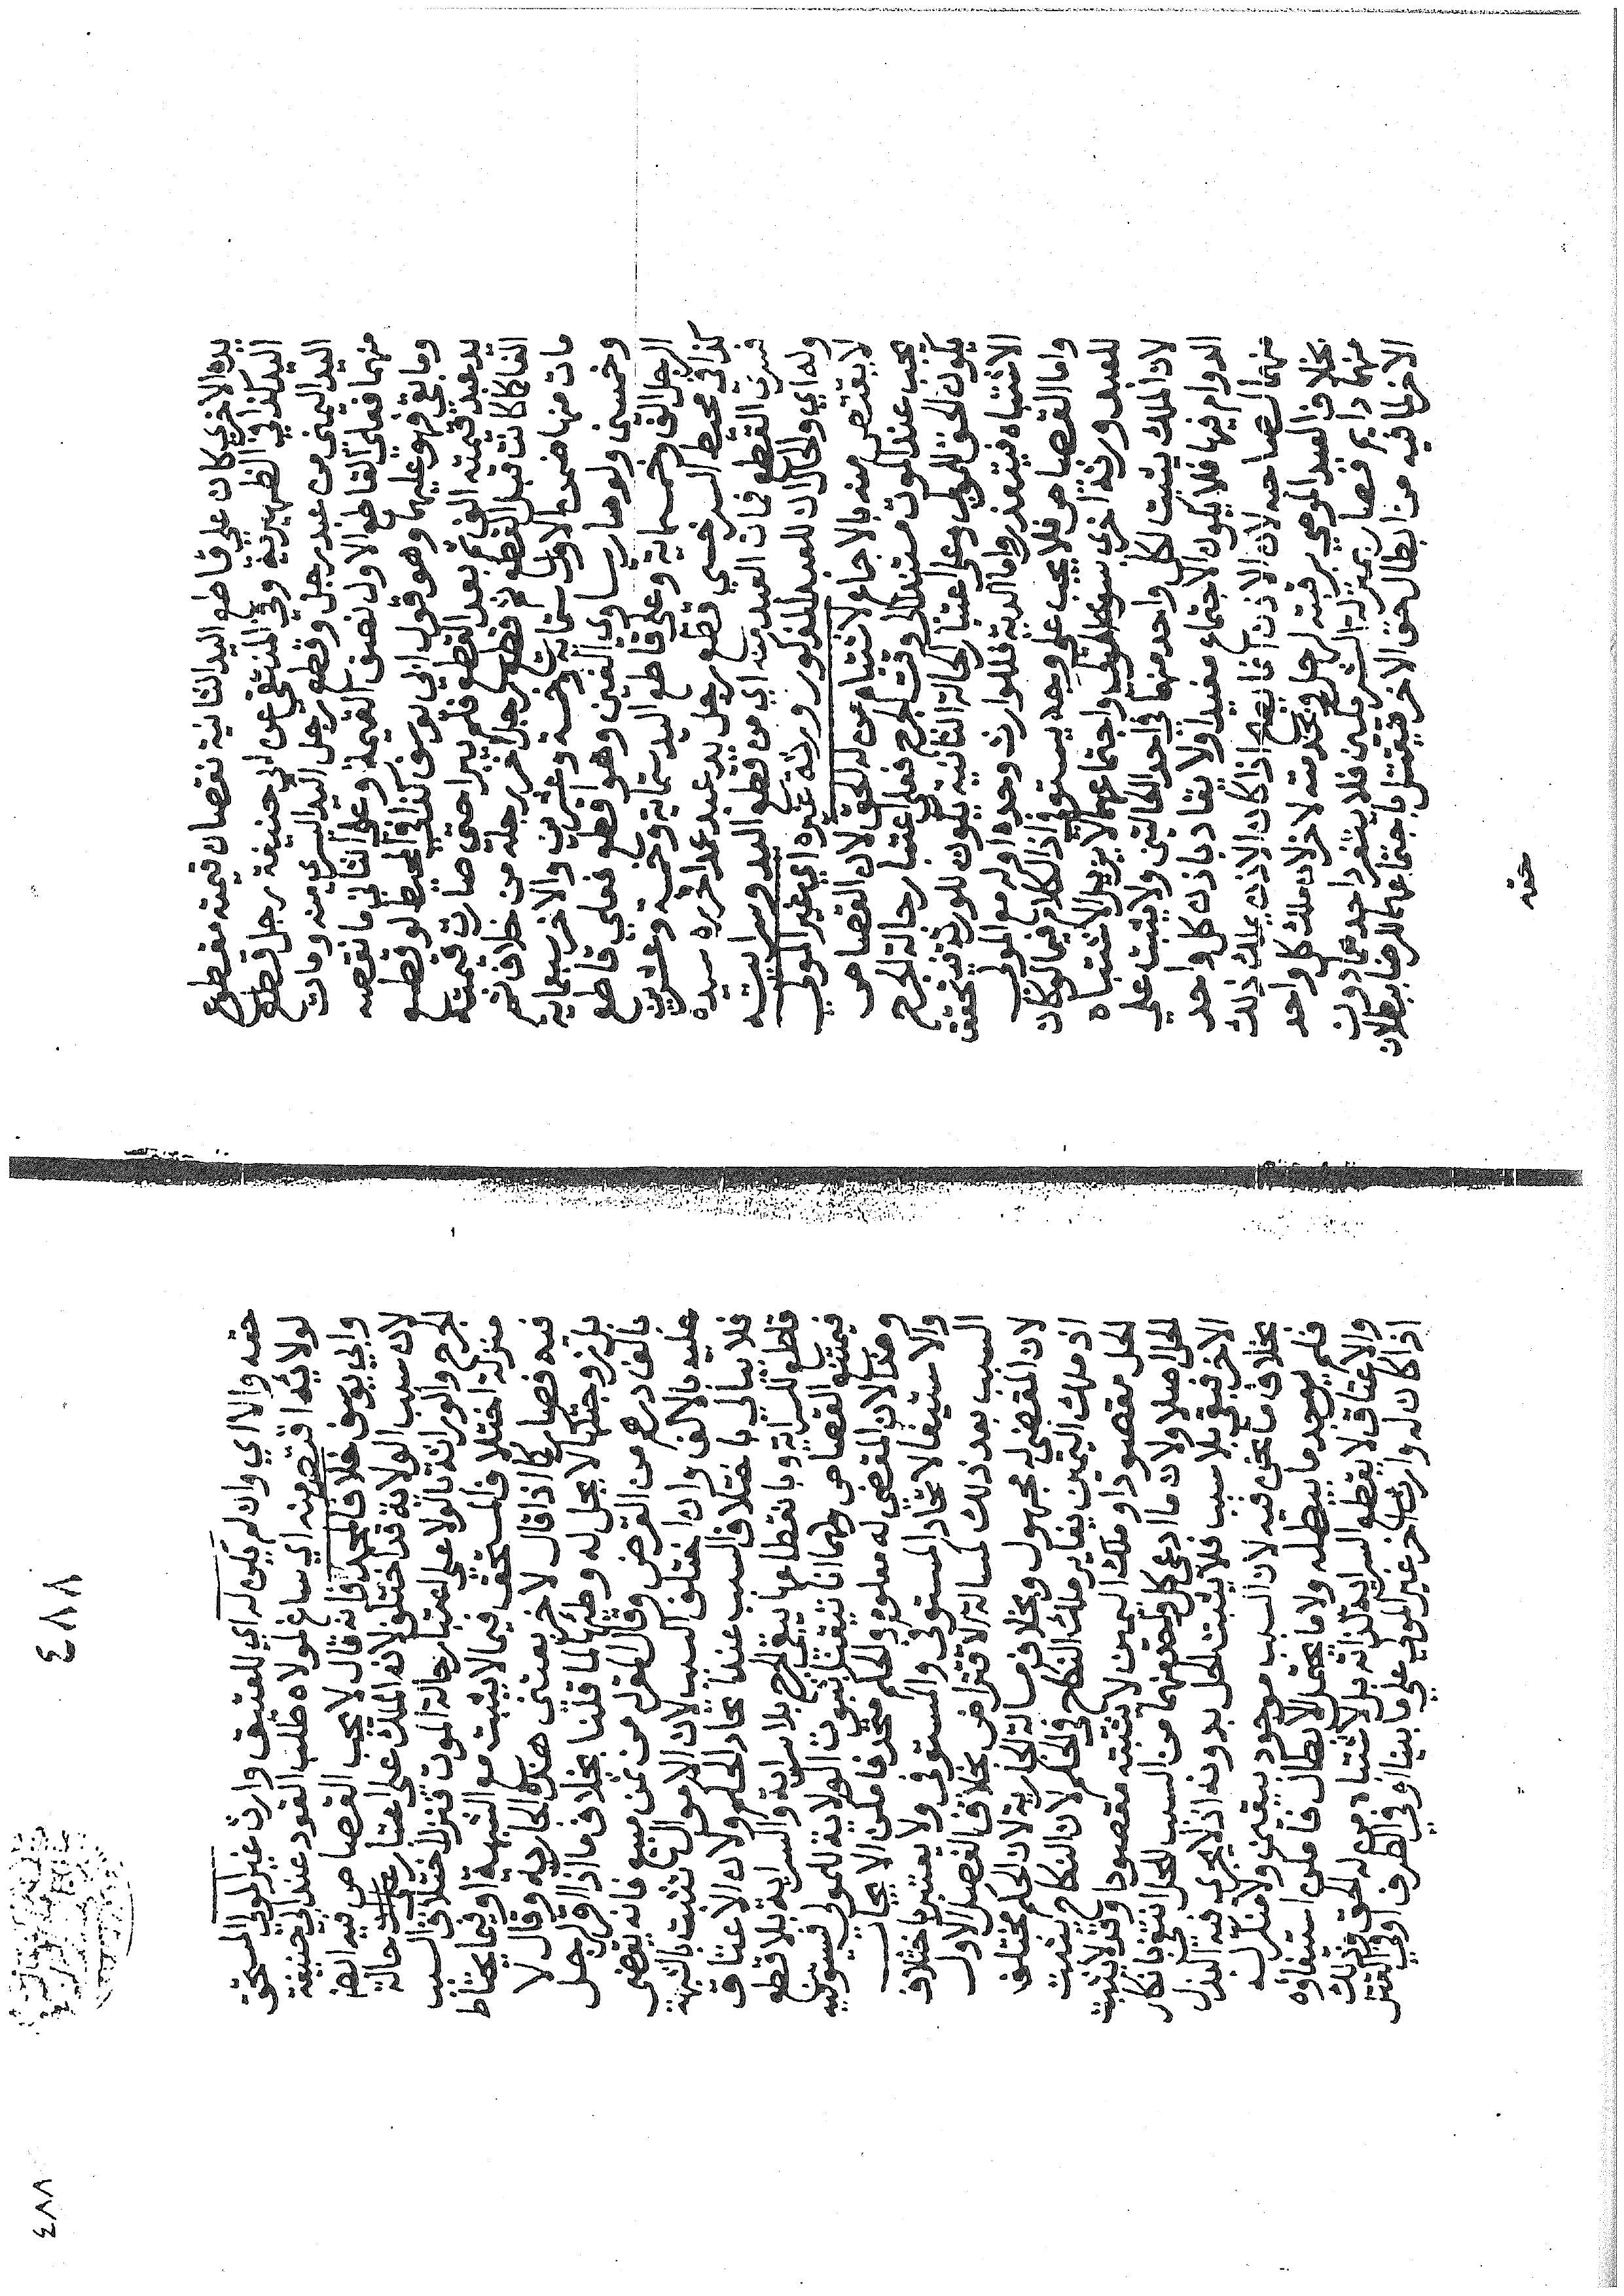 يده الاخرى كان علي قاطع اليد الثانية نقصان قيمته مقطوع
اليد كذا في الظهيرية وفي المنتقى عن ابي حنيفة رجل قطع
اليد اليمنى من عبد رجل وقطع رجل اليد اليسرى منه ومات
منهما فعلي القاطع الاول نصف القيمة وعلى الثاني ما نقصه
وما بقي فهو عليهما وهو قول ابي يوسف كذا في المحيط لو قطع
يد عبد قيمته الف ثم بعد القطع فلم يبرا حتى صارت قيمته
الفا كما كانت قبل القطع ثم قطع رجل اخر رجله من خلاف ثم
مات منهما ضمن الاول ستماية وخمسة وعشرين والاخر سبعماية
وخمسين ولو صار يساوي الفين وهو اقطع فعلي قاطع
الرجل الف وخمسماية وعلي قاطع اليد ستماية وخمسة وعشرين
كذا في محيط السرخسي قطع رجل يد عبد عمدا حرره سيده
فسرت القطع فمات العبد منه اي من قطع اليد وسرايته
وله اي والحال ان للعبد المذكور ورثة غيره اي غير المولي
لا يقتص منه بالاجماع لاشتباه من له الحق لان القصاص
يجب عند الموت مستندا الى وقت الجرح فعلى اعتبار حالة الجرح
يكون الحق للمولى وعلى اعتبار الحالة الثانية يكون للورثة فيتحقق
الاشتباه فيتعذر واما الدية فللوارث وحده او له مع المولى
واما القصاص فلا يجب علي وجه يستوفى اذ الكلام فيما لو كان
للعبد ورثة اخرى سوى المولى واجتماعهما لا يزيل الاشتباه
لان الملك يثبت لكل واحد منهما في احدى الحالتين ولا يثبت علي
الدوام فيها فلا يكون الاجتماع مفيدا ولا يقاد باذن كل واحد
منهما لصاحبه لان الاذن انما يصح اذا كان الاذن يملك ذلك
بخلاف العبد الموصي برقبته لرجل وبخدمته لاخر لان ملك كل واحد
منهما دايم فصار بمنزلة الشريكين فلا ينفرد احدهما دون
الاخر لما فيه من ابطال حق الاخر فيقتل باجتماعهما للرضا ببطلان
حقه
حقه والا اي وان لم يكن له اي للعتيق وارث غير المولي المستحق
لولائه اقتص منه اي ساغ لمولاه طلب القود عند ابي حنيفة
وابي يوسف خلافا لمحمد فانه قال لا يجب القصاص فيه ايضا
لان سبب الولاية قد اختلف لانه الملك على اعتبار حالة
الجرح والوراثة بالولا على اعتبار حالة الموت فنزل اختلاف السبب
منزلة اختلاف المستحق فيما لا يثبت مع الشبهة او فيما يحتاط
فيه فصار كما اذا قال لاخر بعتني هذه الجارية وقال لا
بل زوجتكها لا يحل له وطئها لما قلنا بخلاف ما اذا اقر رجل
بالف درهم من القرض وقال المقر له من ثمن مبيع فانه يقضى
عليه بالالف وان اختلف السبب لان الاموال تثبت بالشبهة
فلا يبالي باختلاف السبب عند اتحاد الحكم ولان الاعتاق
قاطع للسراية وبانقطاعها يبقى الجرح بلا سراية والسراية بلا قطع
فيمتنع القصاص ولهما انا تيقنا بثبوت الولاية للمولى فيستوفيه
وهذا لان المقضي له معلوم والحكم متحد فامكن الايجاب
والاستيفا لاتحاد المستوفي والمستوفى ولا يعتبر باختلاف
السبب بعد ذلك كمسالة الاقراض بخلاف الفصل الاول
لان المقضى له مجهول وبخلاف مسالة الجارية لان الحكم مختلف
اذ ملك اليمين يغاير ملك النكاح في الحكم لان النكاح يثبت
الحل مقصودا وملك اليمين لا يثبته مقصودا وقد لا يثبت
الحل اصلا ولان ما ادعى كل واحد منهما من السبب للحل انتفى بانكار
الاخر فبقي بلا سبب فلا يثبت الحل بدونه اذ لا يجري فيه البذل
بخلاف ما نحن فيه لان السبب موجود بيقين ولا منكر له
فلم يوجد ما يبطله ولا ما يحتمل الابطال فامكن استيفاؤه
والاعتاق لا يقطع السراية لذاته بل لاشتباه من له الحق وذلك
اذا كان له وارث اخر غير المولي علي ما بينا او في الطرف او في القتل
٤٨٨
٤٨٨